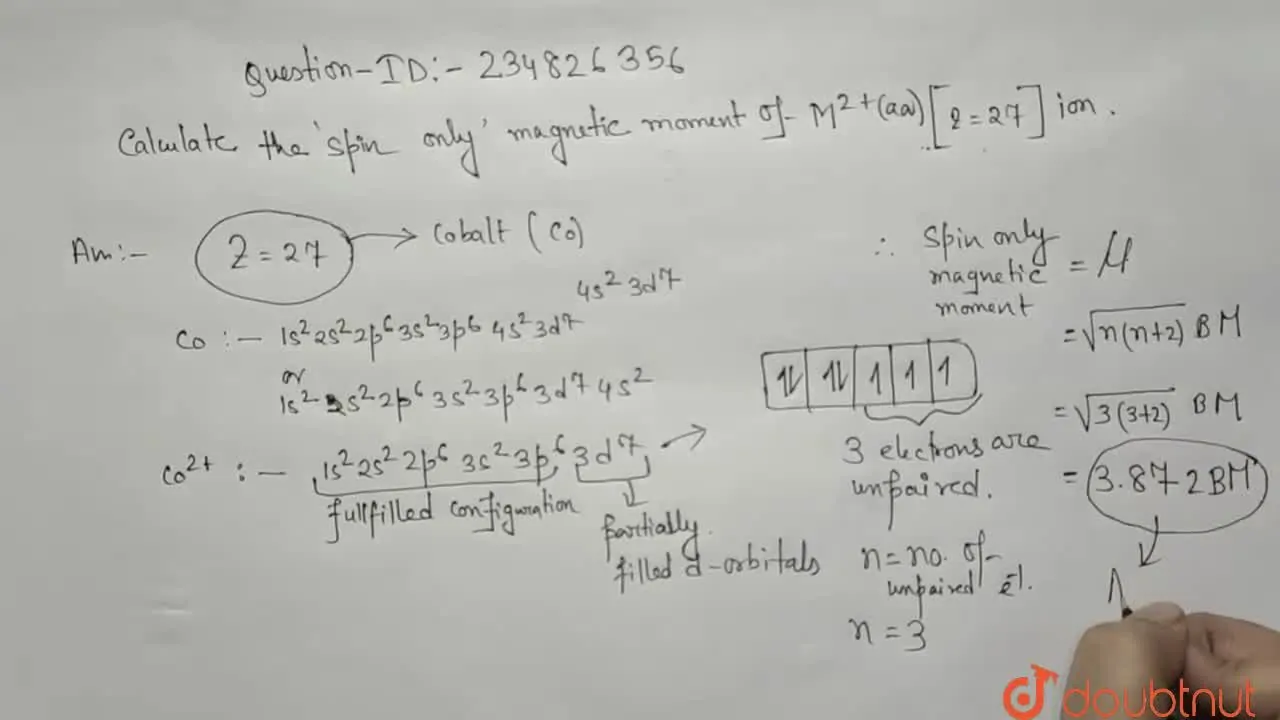 Question-ID:- 234826356
Calculate the 'spin only' magnetic moment of M²⁺(aq) [Z=27] ion.
Ans:- Z=27 → Cobalt (Co)
4s² 3d⁷
Co :- 1s²2s²2p⁶3s²3p⁶ 4s²3d⁷
or
1s² 2s²2p⁶ 3s²3p⁶3d⁷4s²
Co²⁺ :- 1s²2s²2p⁶ 3s²3p⁶ 3d⁷ →
fullfilled configuration
partially
filled d-orbitals
1l 1l 1 1 1
3 electrons are
unpaired.
n=no. of
unpaired e⁻.
n=3
∴ Spin only
magnetic = μ
moment
=√n(n+2) BM
=√3(3+2) BM
= 3.872BM
doubtnut